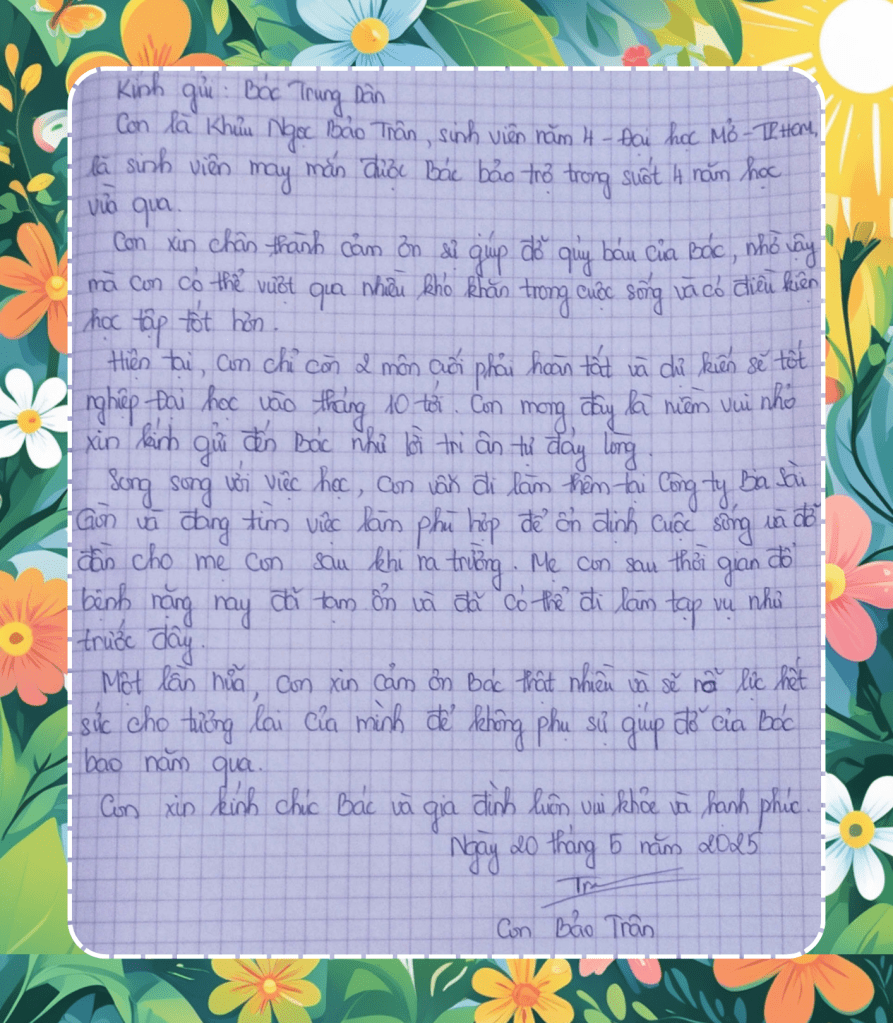 Kính gửi : Bác Trung Dân
Con là Khưu Ngọc Bảo Trân, sinh viên năm 4 - Đại học Mở - TP.HCM,
là sinh viên may mắn được Bác bảo trợ trong suốt 4 năm học
vừa qua.
Con xin chân thành cảm ơn sự giúp đỡ qúy báu của Bác, nhờ vậy
mà con có thể vượt qua nhiều khó khăn trong cuộc sống và có điều kiện
học tập tốt hơn.
Hiện tại, con chỉ còn 2 môn cuối phải hoàn tất và dự kiến sẽ tốt
nghiệp Đại học vào tháng 10 tới. Con mong đây là niềm vui nhỏ
xin kính gửi đến Bác như lời tri ân từ đáy lòng.
Song song với việc học, con vẫn đi làm thêm tại Công ty Bia Sài
Gòn và đang tìm việc làm phù hợp để ổn định cuộc sống và đỡ
đần cho mẹ con sau khi ra trường. Mẹ con sau thời gian đổ
bệnh nặng nay đã tạm ổn và đã có thể đi làm tạp vụ như
trước đây.
Một lần nữa, con xin cảm ơn Bác thật nhiều và sẽ nỗ lực hết
sức cho tương lai của mình để không phụ sự giúp đỡ của Bác
bao năm qua.
Con xin kính chúc Bác và gia đình luôn vui khỏe và hạnh phúc.
Ngày 20 tháng 5 năm 2025
Con Bảo Trân